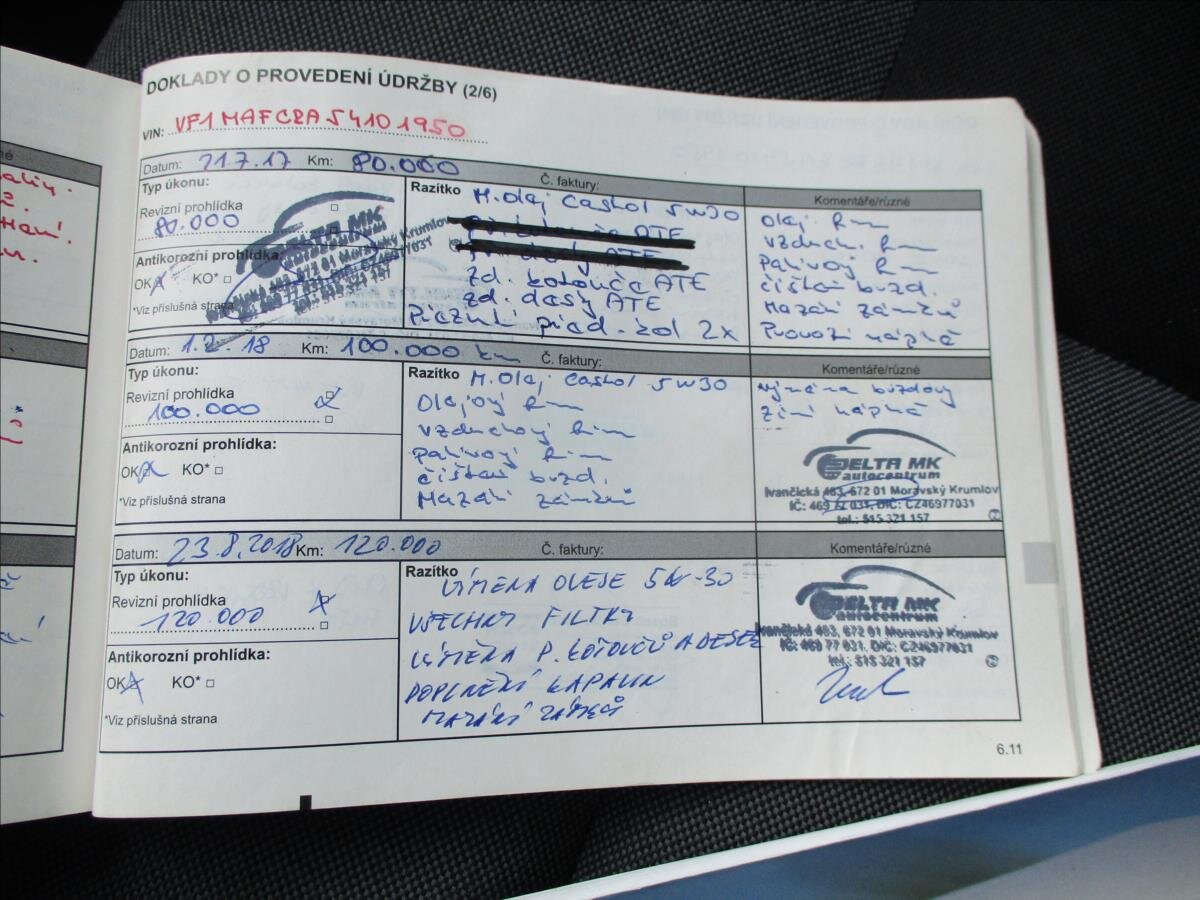 DOKLADY O PROVEDENÍ ÚDRŽBY (2/6)
VIN: VF1MAFCRA54101950
Datum: 21.7.17 Km: 80.000
Č. faktury:
Typ úkonu:
Revizní prohlídka
80.000
Antikorozní prohlídka:
OK KO*
*Viz příslušná strana
DELTA MK
Razítko
M.olej Castrol 5W30
zd. kotouče ATE
zd. desky ATE
2x
Komentáře/různé
Olej.
vzduch.
Palivový
čištění brzd.
Mazání zámků
Provozní náplně
Datum: 1.2.18 Km: 100.000 km
Č. faktury:
Typ úkonu:
Revizní prohlídka
100.000
Antikorozní prohlídka:
OK KO*
*Viz příslušná strana
Razítko
M.Olej Castrol 5W30
Olejový
Vzduchový
Palivový
čištění brzd.
Mazání zámků
Komentáře/různé
Výměna brzdový
DELTA MK
autocentrum
Ivančická 463, 672 01 Moravský Krumlov
IČ: 469 77 031, DIČ: CZ46977031
tel.: 515 321 157
Datum: 23.8.2018 Km: 120.000
Č. faktury:
Typ úkonu:
Revizní prohlídka
120.000
Antikorozní prohlídka:
OK KO*
*Viz příslušná strana
Razítko
VÝMĚNA OLEJE 5W-30
VŠECHNY FILTRY
VÝMĚNA P. KOTOUČŮ A DESEK
DOPLNĚNÍ KAPALIN
MAZÁNÍ ZÁMKŮ
Komentáře/různé
DELTA MK
autocentrum
Ivančická 463, 672 01 Moravský Krumlov
IČ: 469 77 031, DIČ: CZ46977031
tel.: 515 321 157
6.11